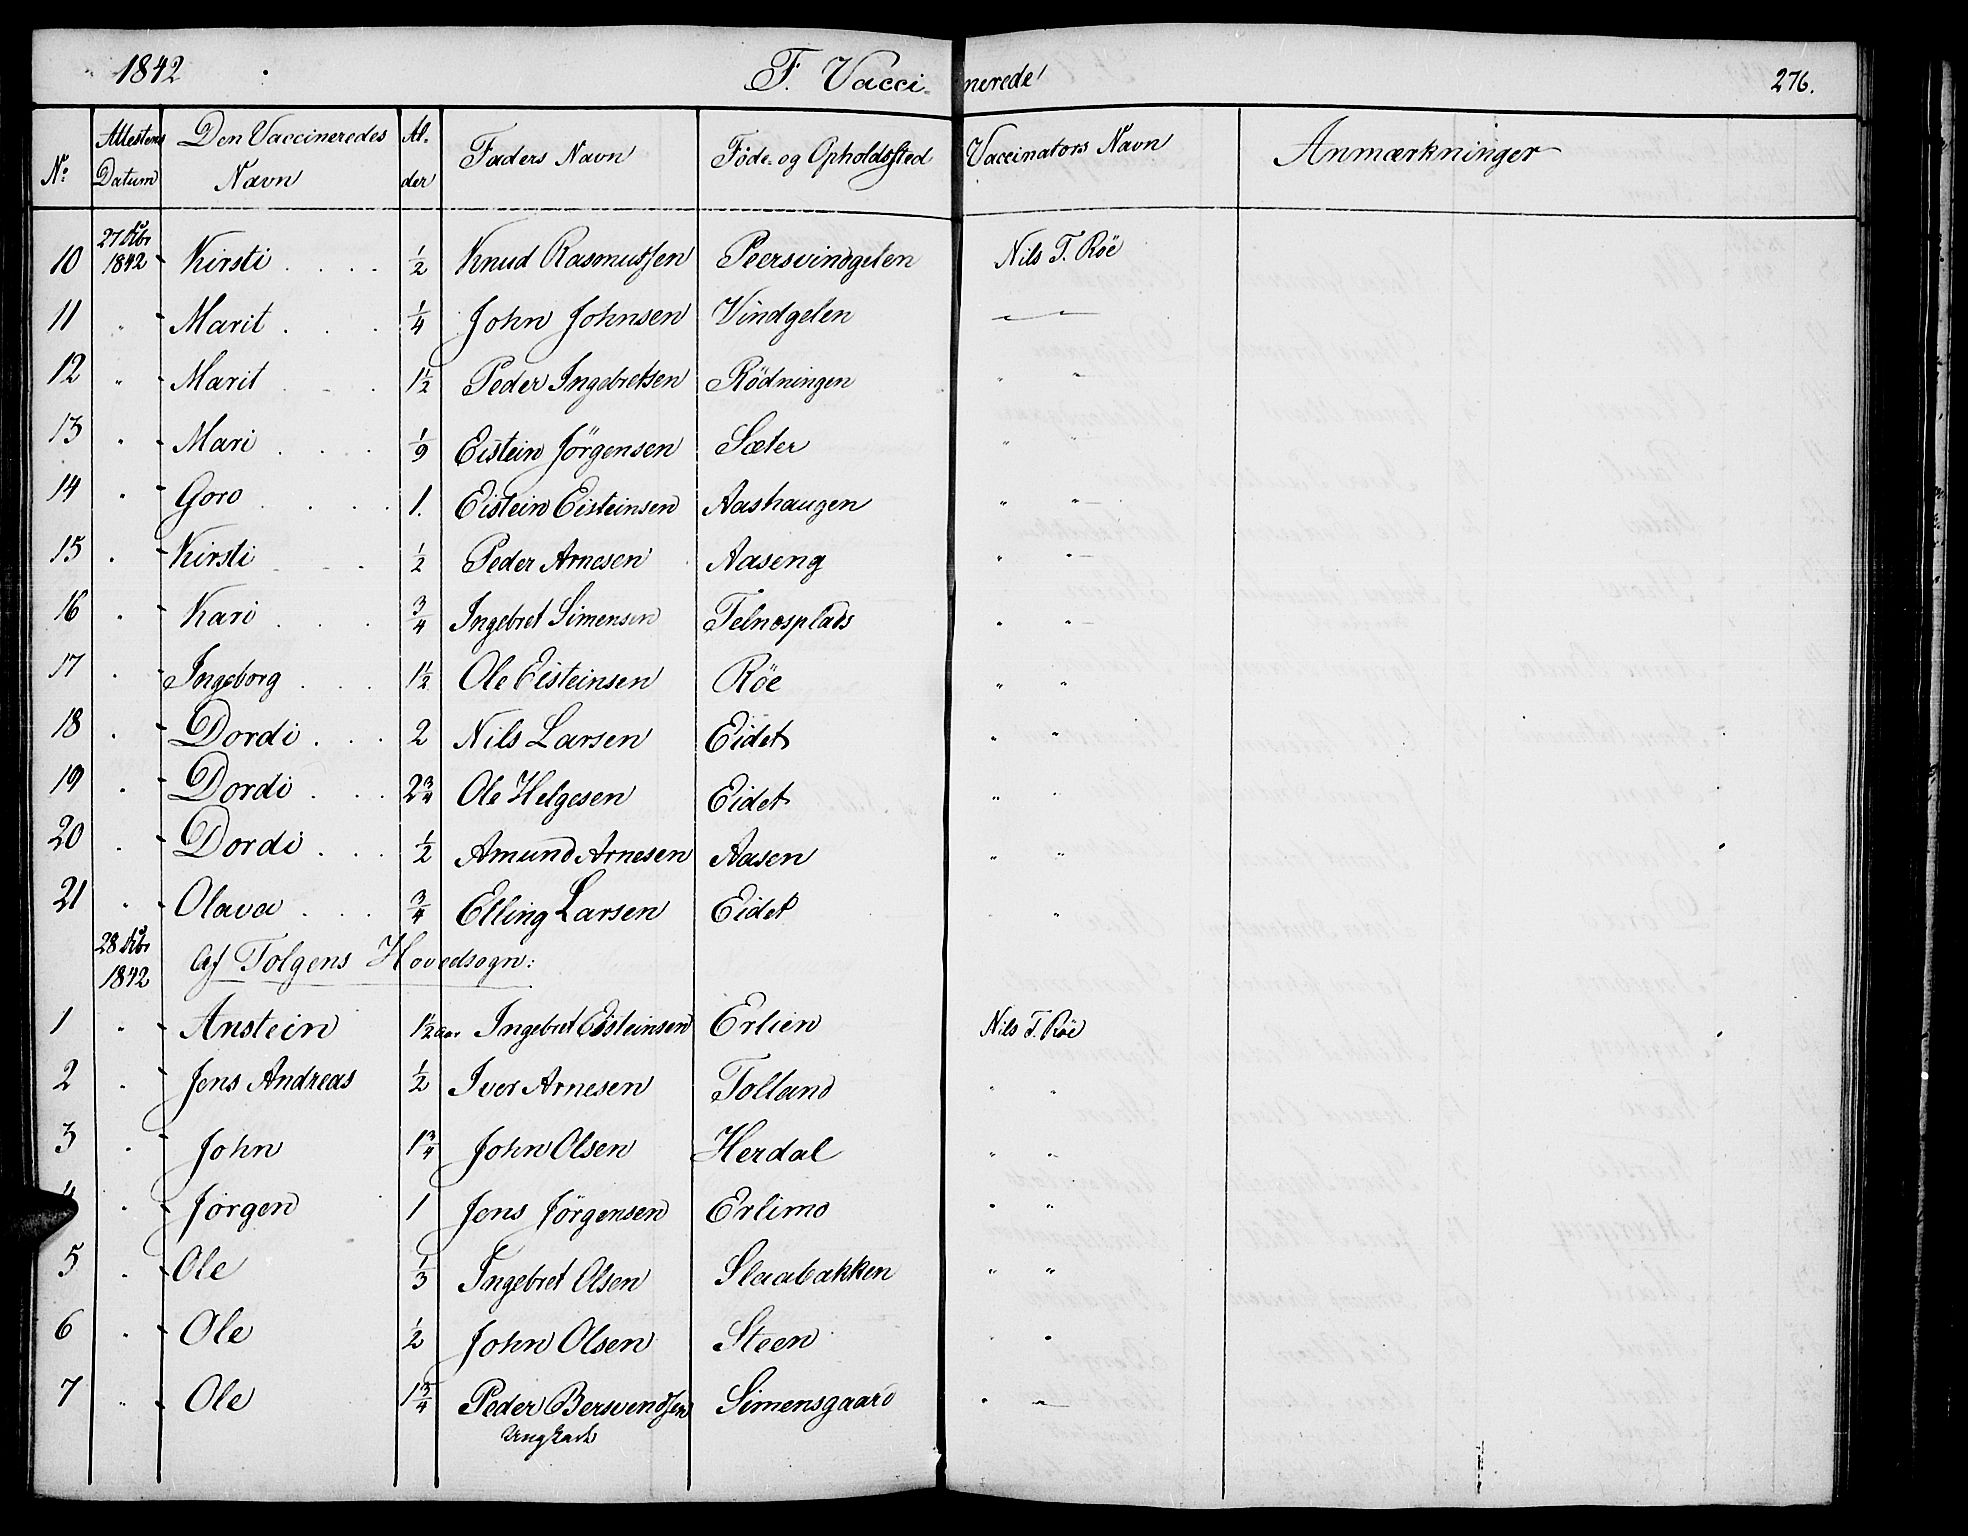 1842 F. Vaccinerede 276.
No: Attestens Datum Den Vaccineredes Navn Alder Faders Navn Føde- og Opholdssted Vaccinators Navn Anmærkninger
10 27 1842 Kirsti . . . . 1/2 Knud Rasmussen Peersvindgelen Nils T. Röe
11 " Marit . . . 1/4 John Johnsen Vindgelen — —
12 " Marit . . . 1 1/2 Peder Ingebretsen Rödningen " "
13 " Mari . . . . 1/9 Eistein Jörgensen Sæter " "
14 " Goro . . . . 1. Eistein Eisteinsen Aashaugen " "
15 " Kirsti . . . 1/2 Peder Arnesen Aaseng " "
16 " Kari . . . 3/4 Ingebret Simensen Telnesplads " "
17 " Ingeborg . . . 1 1/2 Ole Eisteinsen Röe " "
18 " Dordi . . . 2 Nils Larsen Eidet " "
19 " Dordi . . . 2 3/4 Ole Helgesen Eidet " "
20 " Dordi . . . 1/2 Amund Arnesen Aasen " "
21 " Olava . . . 3/4 Elling Larsen Eidet "
28 1842 Af Tolgens Hovedsogn:
1 " Anstein 1 1/2 aar Ingebret Eisteinsen Erlien Nils T. Röe
2 " Jens Andreas 1/2 Iver Arnesen Tolland " "
3 " John 1 3/4 John Olsen Herdal " "
4 " Jørgen 1 Jens Jörgensen Erlimo " "
5 " Ole 1/3 Ingebret Olsen Slaabakken " "
6 " Ole 1/2 John Olsen Steen " "
7 " Ole 1 3/4 Peder Bersvendsen Simensgaard " "